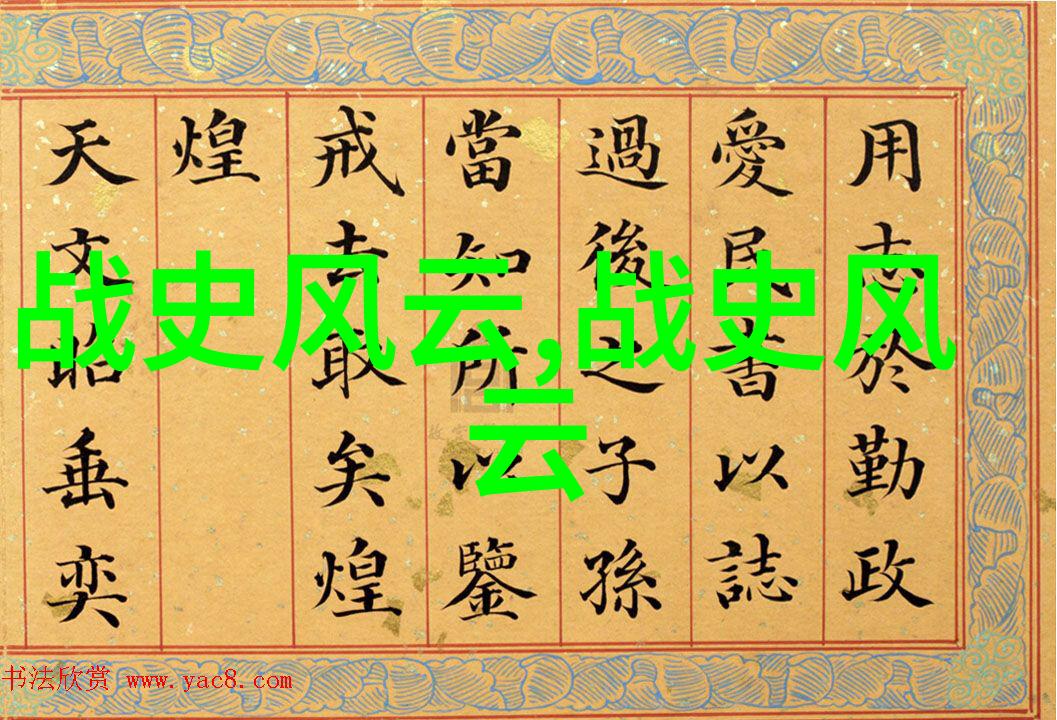 用志於勤政
愛民書以誌
過後之子孫
當知所以鑒
戒去取矣煌
煌
天文昭垂奕
战史风云,战史风
云
书法欣赏 www.yac8.com